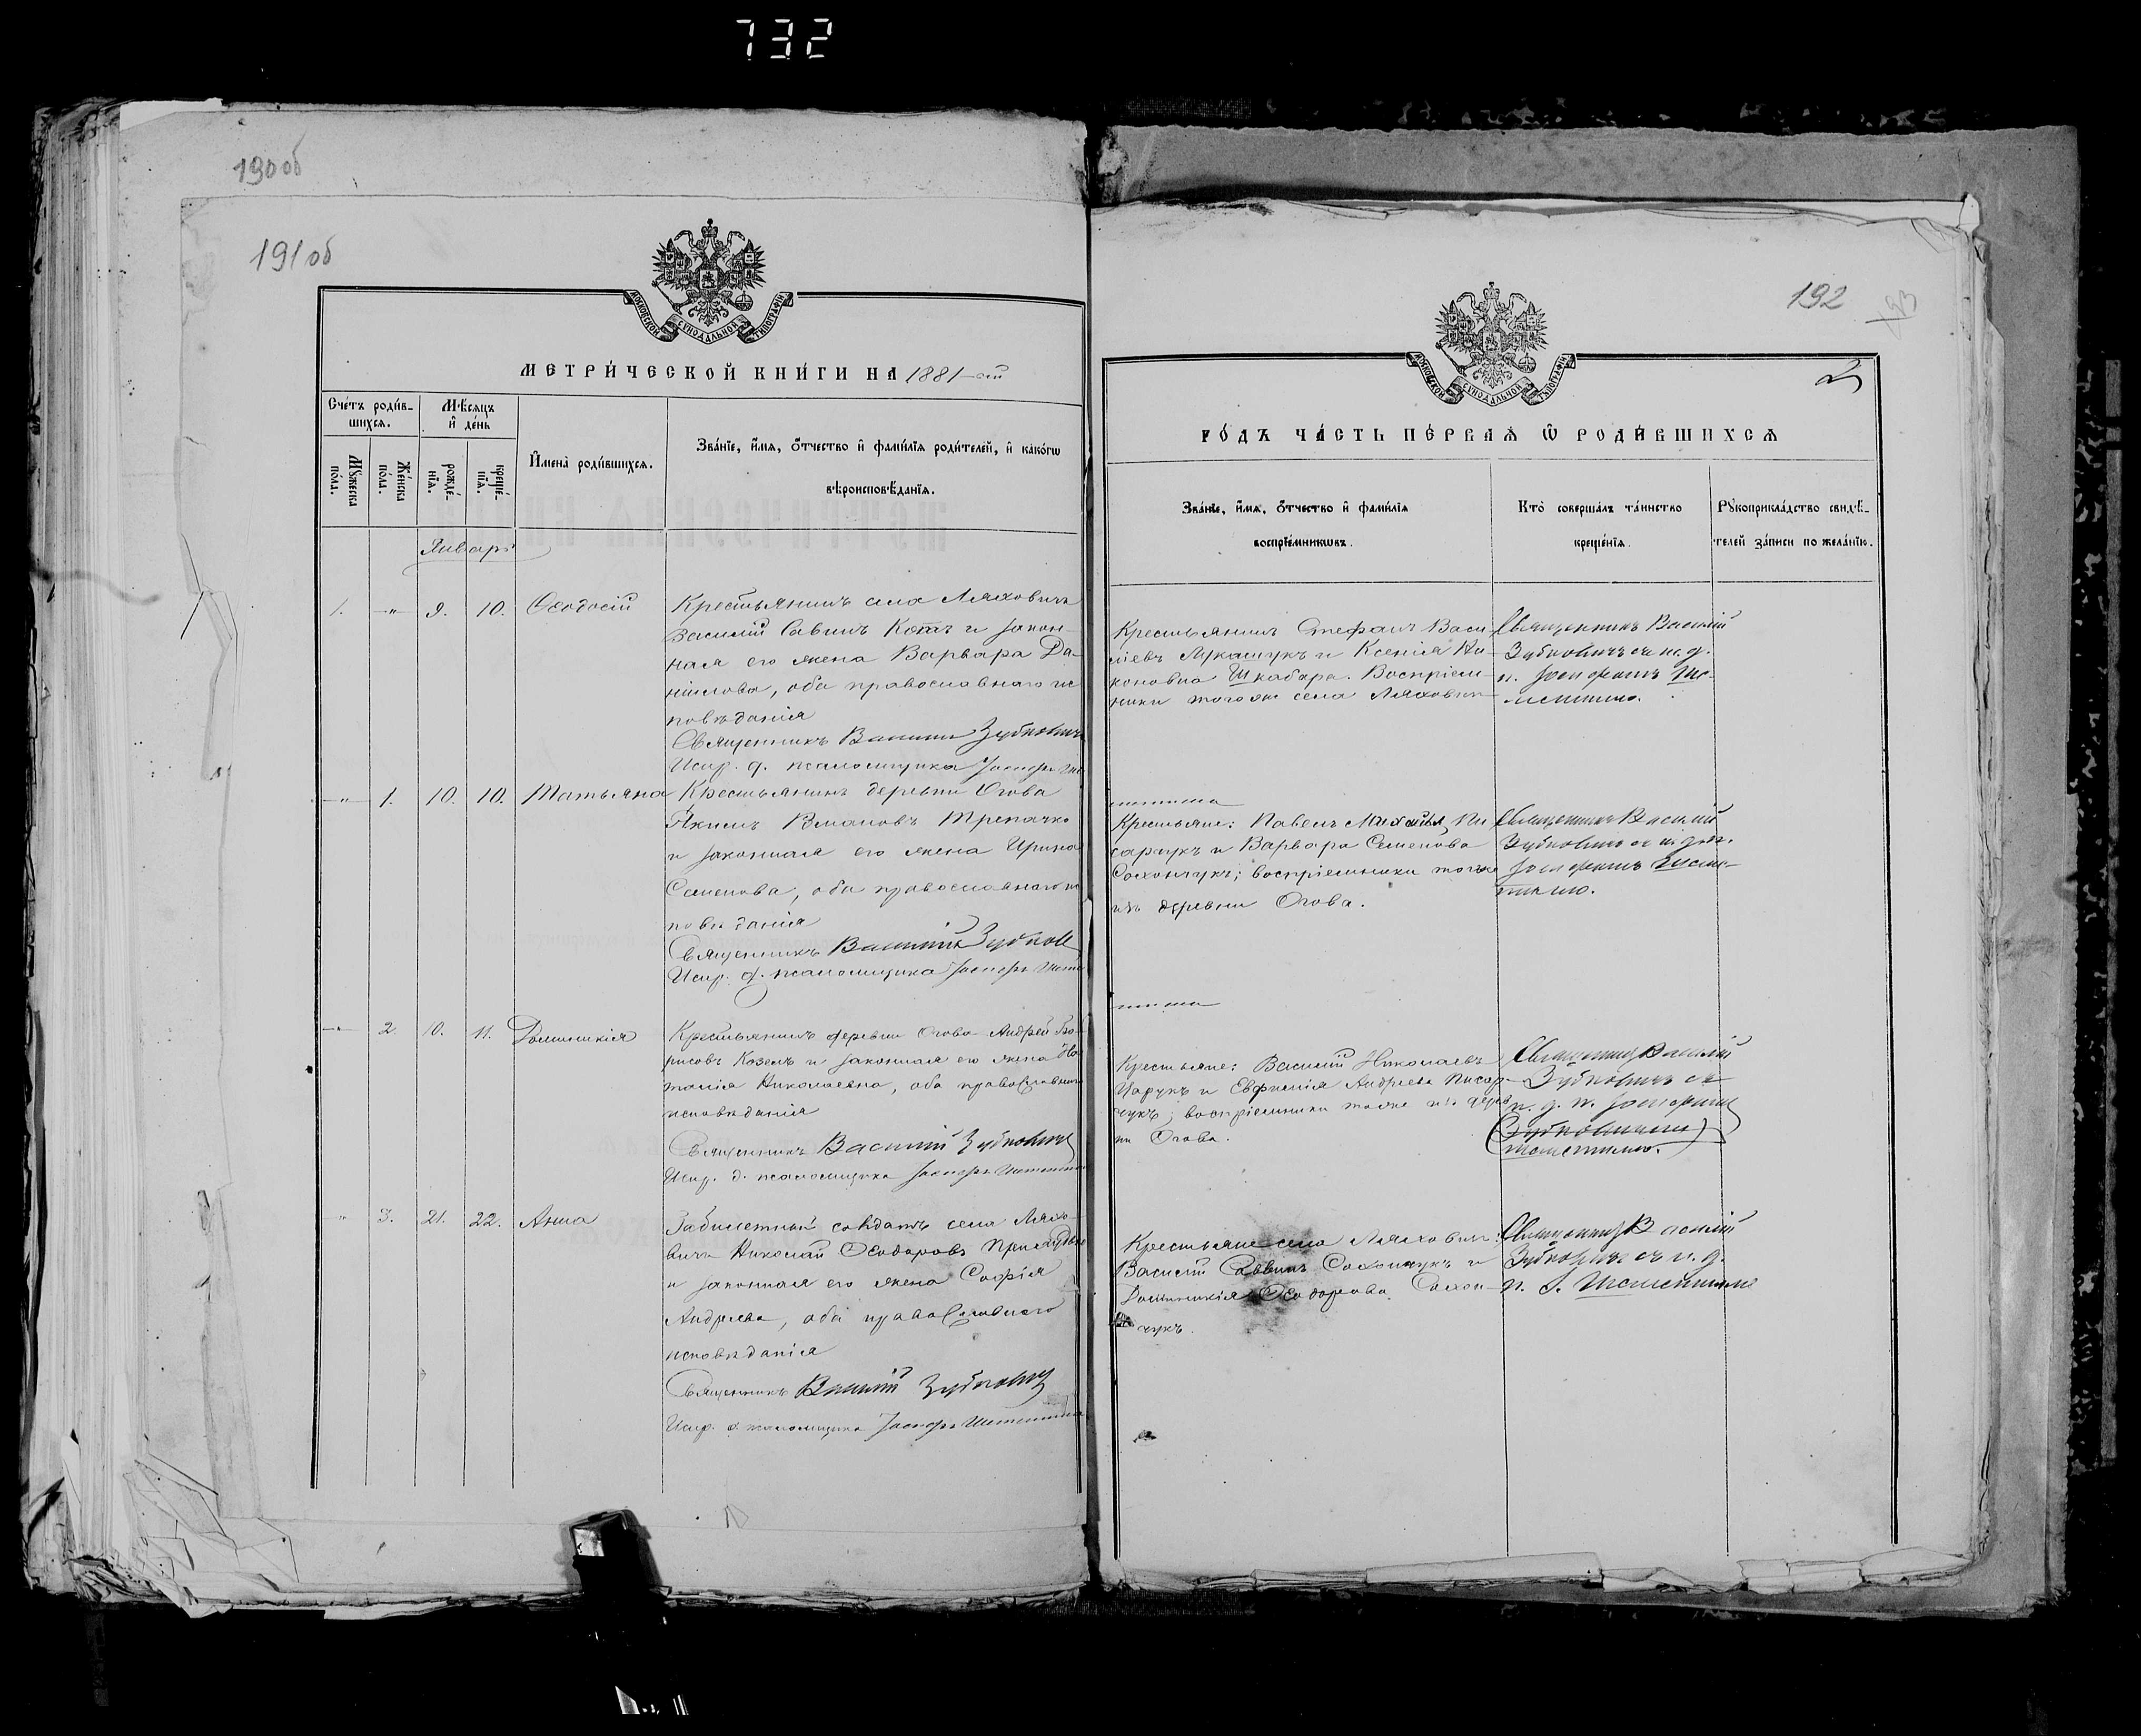 732
190 об
191 об
МОСКОВСКОЙ СѴНОДАЛЬНОЙ ТИПОГРАФІИ
МЕТРИ́ЧЕСКОЙ КНИ́ГИ НА 1881-ый
Сче́тъ роди́в-
шихсѧ.
Мꙋ́жеска
по́ла.
Же́нска
по́ла.
Мѣ́сѧцъ
и҆ де́нь
рожде́-
нїѧ.
креще́-
нїѧ.
И҆мена̀ роди́вшихсѧ.
Зва́нїе, и҆́мѧ, ѻ҆́тчество и҆ фами́лїѧ роди́телей, и҆ како́гѡ
вѣроисповѣ́данїѧ.
Январь
1. -"- 9. 10. Ѳеодосій Крестьянинъ села Ляховичъ
Василій Савинъ Котъ и закон-
ная его жена Варвара Да-
ніилова, оба православнаго ис
повѣданія
Священникъ Василій Зубковичъ
Испр. д. псаломщика Іосифъ
-"- 1. 10. 10. Татьяна Крестьянинъ деревни Огова
Якимъ Трепачко
и законная его жена Ирина
Семенова, оба православнаго ис
повѣданія
Священникъ Василій Зубков
Испр. д. псаломщика Іосифъ
-"- 2. 10. 11. Домникія Крестьянинъ деревни Огова Андрей Бо-
рисовъ Козелъ и законная его жена На
талія Николаевна, оба православнаго
исповѣданія
Священникъ Василій Зубковичъ
Испр. д. псаломщика Іосифъ
" 3. 21. 22. Анна Забилетный солдатъ села Ляхо-
вичъ Николай Ѳеодоровъ
и законная его жена Софія
Андреева, оба православного
исповѣданія
Священникъ Василій Зубковичъ
Испр. д. псаломщика Іосифъ
192
193
МОСКОВСКОЙ СѴНОДАЛЬНОЙ ТИПОГРАФІИ
ГО́ДЪ ЧА́СТЬ ПЕ́РВАѦ Ѡ҆ РОДИ́ВШИХСѦ
Зва́нїе, и҆́мѧ, ѻ҆́тчество и҆ фами́лїѧ
воспрїе́мникѡвъ.
Кто̀ соверша́лъ та́инство
креще́нїѧ.
Рꙋкоприкла́дство свидѣ́-
телей за́писи по жела́нїю.
Крестьянинъ Стефанъ Васи-
ліевъ Лукашукъ и Ксенія Ни-
коновна Шкабара. Воспріем-
ники того же села Ляховичъ
Священникъ Василій
Зубковичъ съ и. д.
п. Іосифомъ
Крестьяне: Павелъ Михайл. Пи
сарчукъ и Варвара Семенова
Сахончукъ; воспріемники тоже
изъ деревни Огова.
Священникъ Василій
Зубковичъ съ
Іосифомъ
Крестьяне: Василій Николаевъ
Царукъ и Евфимія Андреева Писар-
чукъ; воспріемники тоже изъ дерев
ни Огова.
Священникъ Василій
Зубковичъ съ
и. д. п. Іосифомъ
Крестьяне села Ляховичъ:
Василій Саввинъ Сахончукъ и
Домникія Ѳеодорова Сахон-
чукъ.
Священникъ Василій
Зубковичъ съ и. д.
п. І.